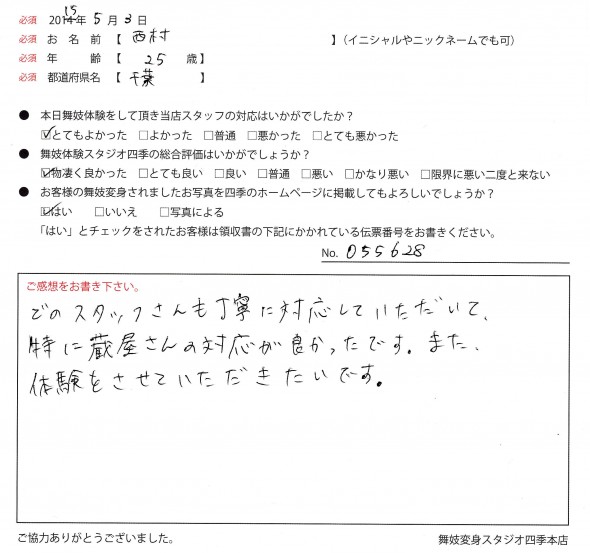 必須 2015年 5月 3日
必須 お名前【 西村 】(イニシャルやニックネームでも可)
必須 年 齢【 25 歳】
必須 都道府県名【 千葉 】
● 本日舞妓体験をして頂き当店スタッフの対応はいかがでしたか?
☑とてもよかった □よかった □普通 □悪かった □とても悪かった
● 舞妓体験スタジオ四季の総合評価はいかがでしょうか?
☑物凄く良かった □とても良い □良い □普通 □悪い □かなり悪い □限界に悪い二度と来ない
● お客様の舞妓変身されましたお写真を四季のホームページに掲載してもよろしいでしょうか?
☑はい □いいえ □写真による
「はい」とチェックをされたお客様は領収書の下記にかかれている伝票番号をお書きください。
No. 055628
ご感想をお書き下さい。
どのスタッフさんも丁寧に対応していただいて、
特に蔵屋さんの対応が良かったです。また、
体験をさせていただきたいです。
ご協力ありがとうございました。
舞妓変身スタジオ四季本店